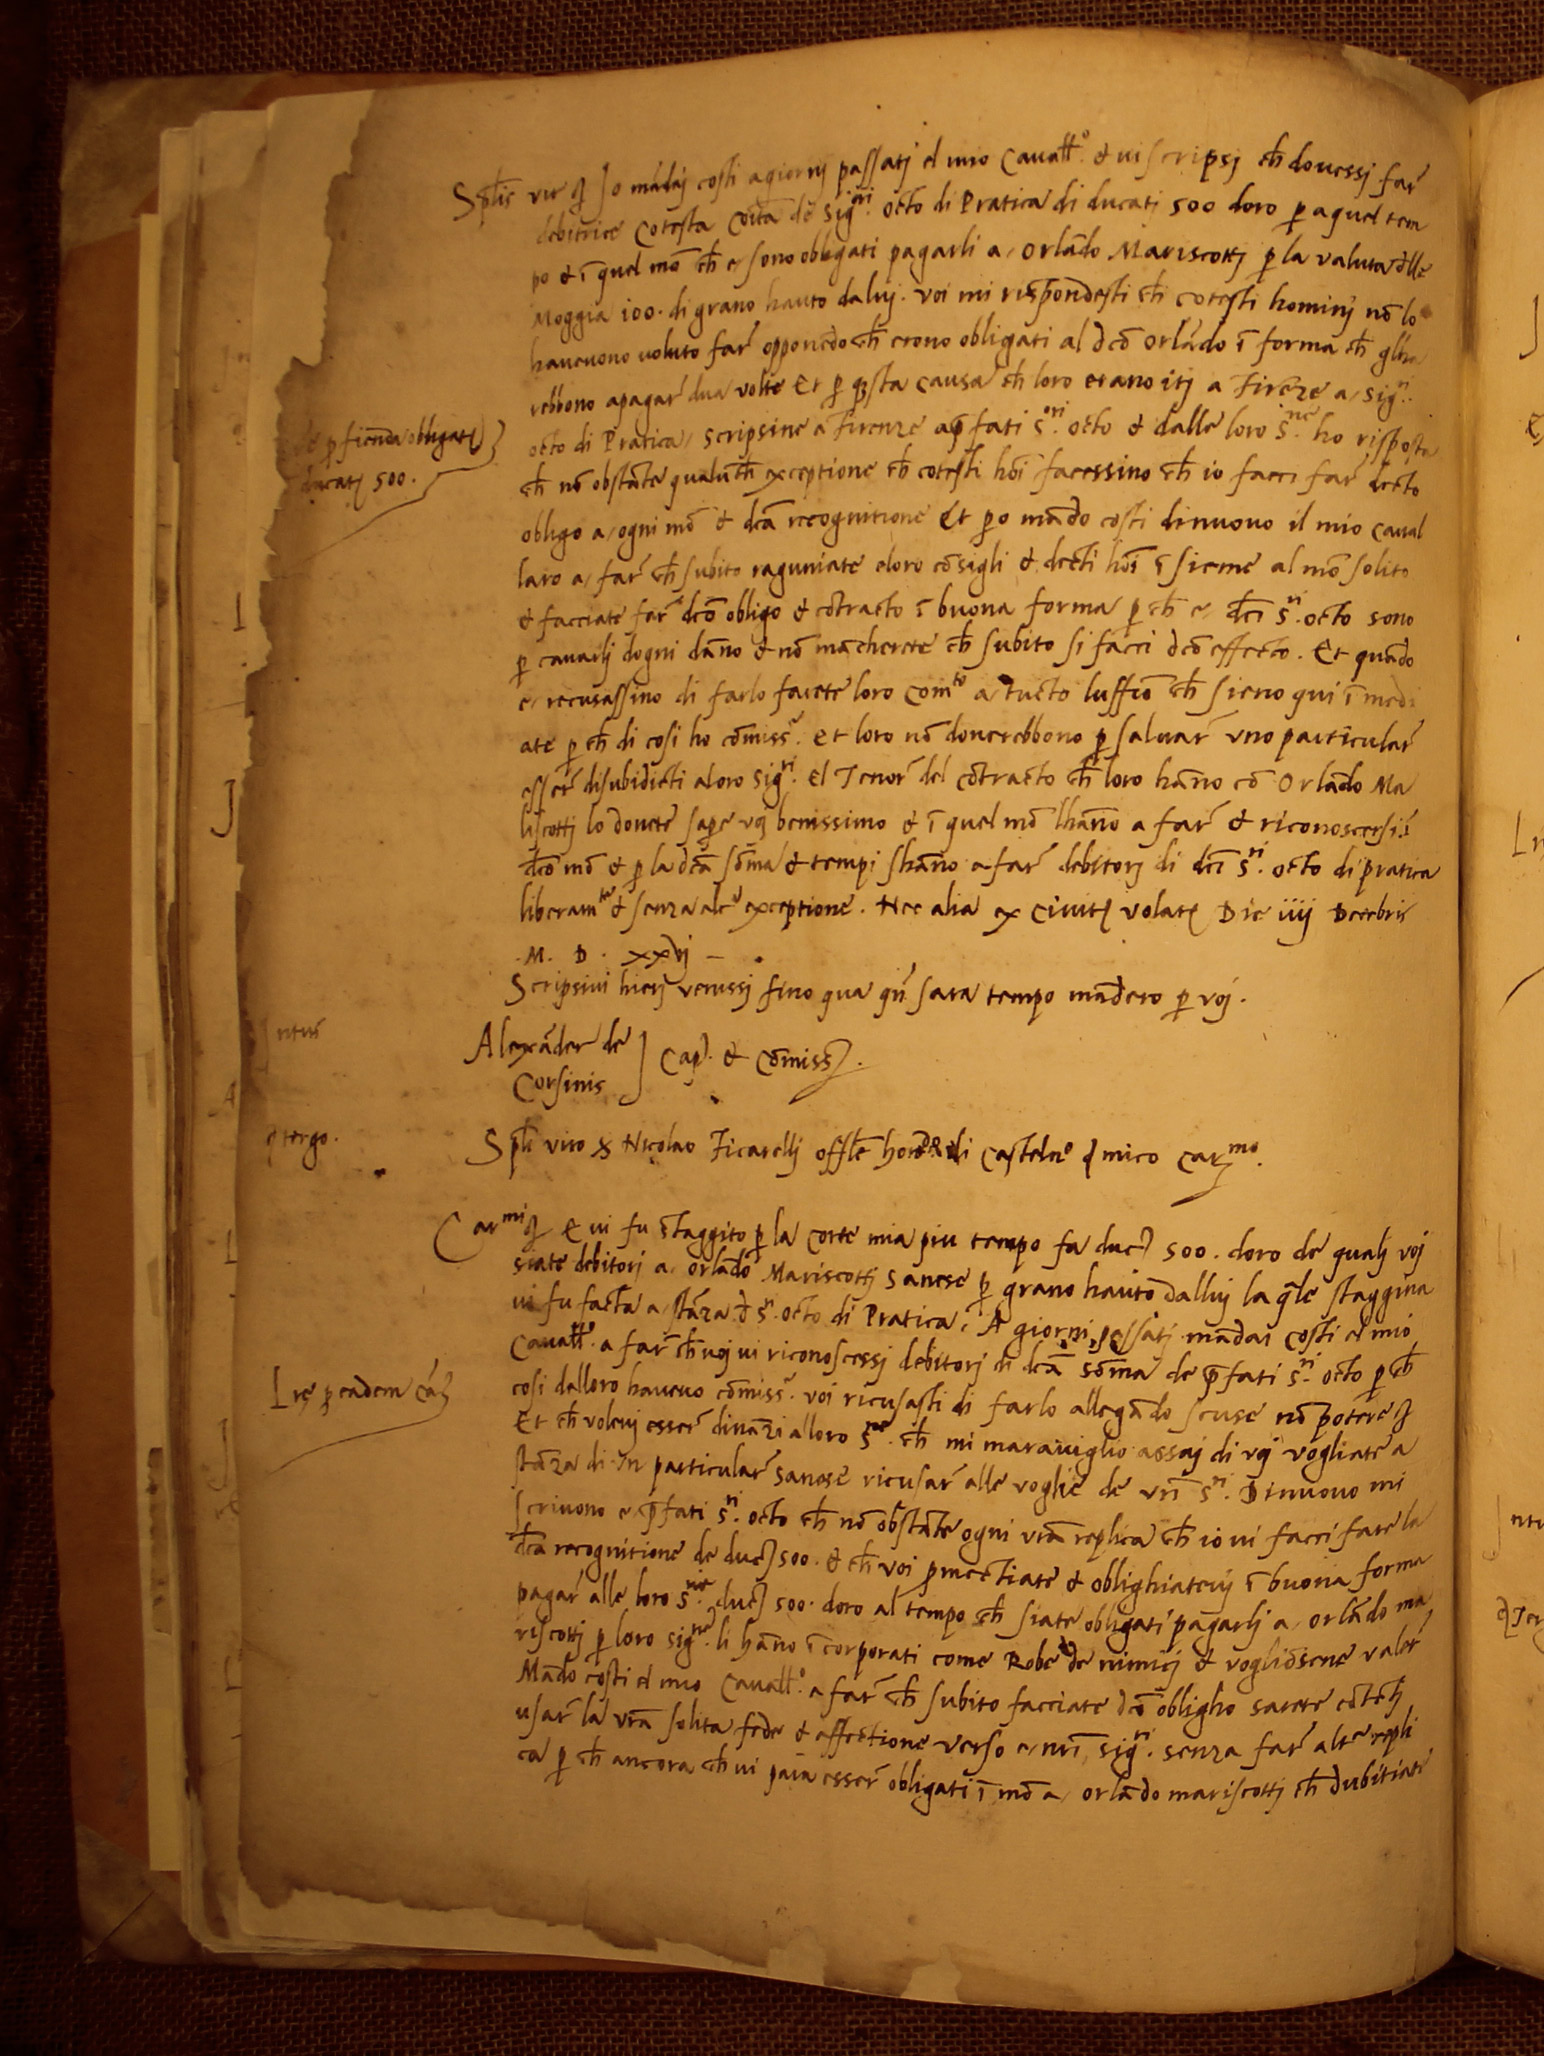 Splis vir &c Io mādaj costi a giornj passatj el mio Cauall.º & ui scripsj ch̄ douessj far̄
debitrice Cotesta Coītā de Sig.ori octo di Pratica di ducatj 500 doro p̱ aquel tem
po & ī quel mō ch̄ e sono obligati pagarli a Orlādo Mariscottj p̱ la valuta dlle
Moggia 100. di grano hauto daluj. Voi mi rispondesti ch̄ cotesti hominj nō lo
haueuono uoluto far̄ opponēdo ch̄ erono obligati al dcō Orlādo ī forma ch̄ glha
rebbono apagar̄ dua volte Et p̱ q̄sta causa ch̄ loro erano itj a Firēze a Sig.ri
octo di Pratica, scripsine a Firenze a p̄fati S.ori octo & dalle loro S.rie ho risposta
ch̄ nō obstāte qualūch̄ exceptione ch̄ cotesti hoī facessino ch̄ io facci far̄ decto
obligo a ogni mō & dcā recognitione Et p̱o mādo costi dinuouo il mio caual
laro a far̄ ch̄ subito raguniate eloro cōsigli & decti hoī īsieme al mō solito
& facciate far̄ dcō obligo & cōtracto ī buona forma p̱ch̄ e dci S.ri octo sono
p̱ cauarlj dogni dāno & nō mācherete ch̄ subito si facci dcō effecto. Et quādo
e recusassino di farlo farete loro Com.to a tucto luffiō ch̄ sieno qui īmedi
ate p̱ch̄ di cosi ho cōmiss.e Et loro nō douerebbono p̱ saluar̄ uno particular̄
esser̄ disubidieti aloro Sig.ri El Tenor̄ del cōtracto ch̄ loro hāno cō Orlādo Ma
liscottj lo douete sap̱e voj benissimo & ī quel mō lhāno a far̄ & riconoscersi ī
dcō mō & p̱ la dcā sōma & tempi shāno a far̄ debitorj di dci S.ri octo di pratica
liberam.te & senza alc.a exceptione. Nec alia ex Ciuit. Volat. Die iiij Decēbris
.M. D. xxvj —
Scripsiui hierj venissj fino qua qn̄ sara tempo mādero p̱ voj.
Alexāder de
Corsinis ] Cap. & Cōmiss.
de p̱ fienda obligat.
ducatj 500.
Intus
a tergo.
Spli viro S Nicolao Ficarellj offle honordi Casteln.º amico Car.mo
Car.mi &c E ui fu staggito p̱ la corte mia piu tempo fa duc. 500. doro de qualj voj
siate debitorj a Orlādo Mariscottj Sanese p̱ grano hauto dalluj la q̄le staggina
ui fu facta a stāza d S.ri octo di Pratica, A giornj passatj mādai costi el mio
Cauall.º a far̄ ch̄ voj ui riconoscessj debitorj di dcā sōma de p̄fati S.ri octo p̱ch̄
cosi dalloro haueuo cōmiss.e Voi ricusasti di farlo allegādo scuse nō potere &c
Et ch̄ volevj esser̄ dināzi alloro S.rie ch̄ mi marauiglio assaj di voj vogliate a
stāza di un particular̄ sanese ricusar̄ alle voglie de vrī S.ri Dinuouo mi
scriuono e p̄fati S.ri octo ch̄ nō obstāte ogni vrā replica ch̄ io ui facci fare la
dcā recognitione de duc. 500. & ch̄ voi p̱mectiate & oblighiatevj ī buona forma
pagar̄ alle loro S.rie duc. 500. doro al tempo ch̄ siate obligati pagarlj a Orlādo ma
riscottj p̱ loro Sig.rie li hāno īcorporati come Robe de nimicj & voglionsene valer̄
Mādo costi el mio Cauall.º a far̄ ch̄ subito facciate dcō obligho sarete cōtētj
usar̄ la vrā solita fede & affectione verso e nrī Sig.ri senza far̄ altre repli
ca p̱ch̄ ancora ch̄ ui paia esser̄ obligati ī mō a Orlādo mariscottj ch̄ dubitiate
Lre p̱ eadem cā